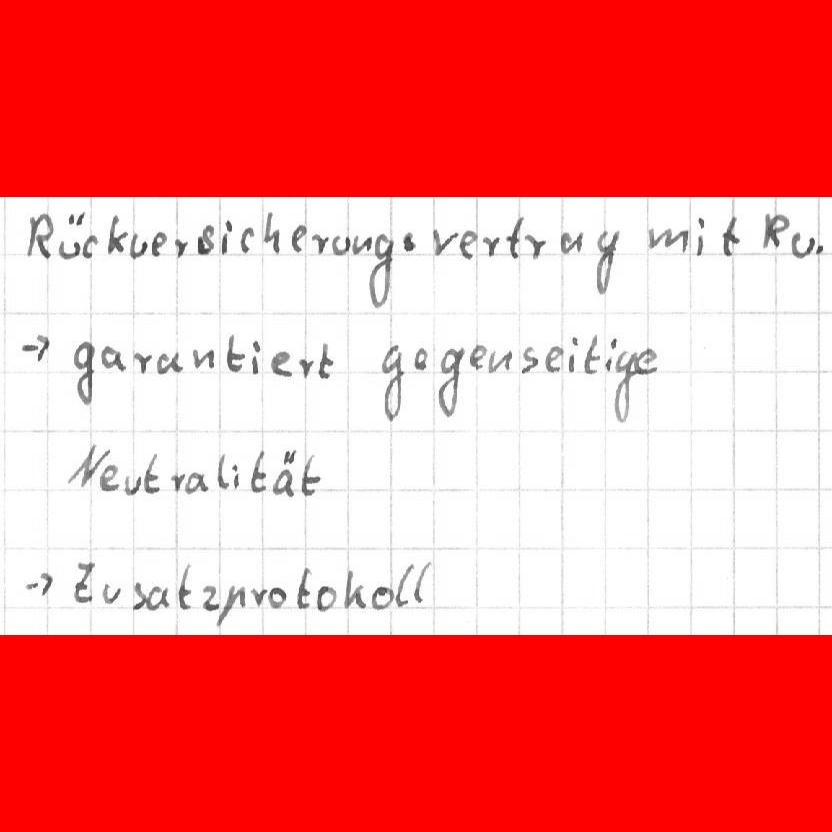 Rückversicherungsvertrag mit Ru.
→ garantiert gegenseitige
Neutralität
→ Zusatzprotokoll